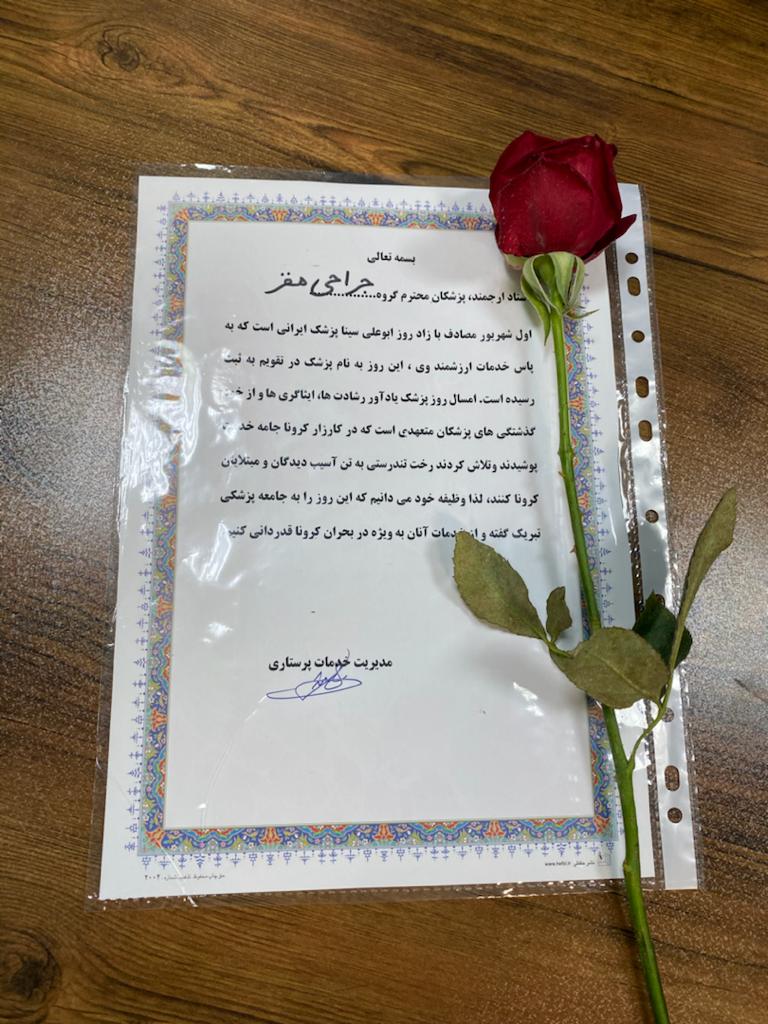 بسمه تعالی
ستاد ارجمند، پزشکان محترم گروه............ جراحی مغز
اول شهریور مصادف با زاد روز ابوعلی سینا پزشک ایرانی است که به
پاس خدمات ارزشمند وی ، این روز به نام پزشک در تقویم به ثبت
رسیده است. امسال روز پزشک یادآور رشادت ها، ایثاگری ها و از خود
گذشتگی های پزشکان متعهدی است که در کارزار کرونا جامه خدمت
پوشیدند وتلاش کردند رخت تندرستی به تن آسیب دیدگان و مبتلایان
کرونا کنند، لذا وظیفه خود می دانیم که این روز را به جامعه پزشکی
تبریک گفته و از خدمات آنان به ویژه در بحران کرونا قدردانی کنیم
مدیریت خدمات پرستاری
حق چاپ محفوظ تذهیب شماره: ۲۰۰۴
www.hefzi.ir